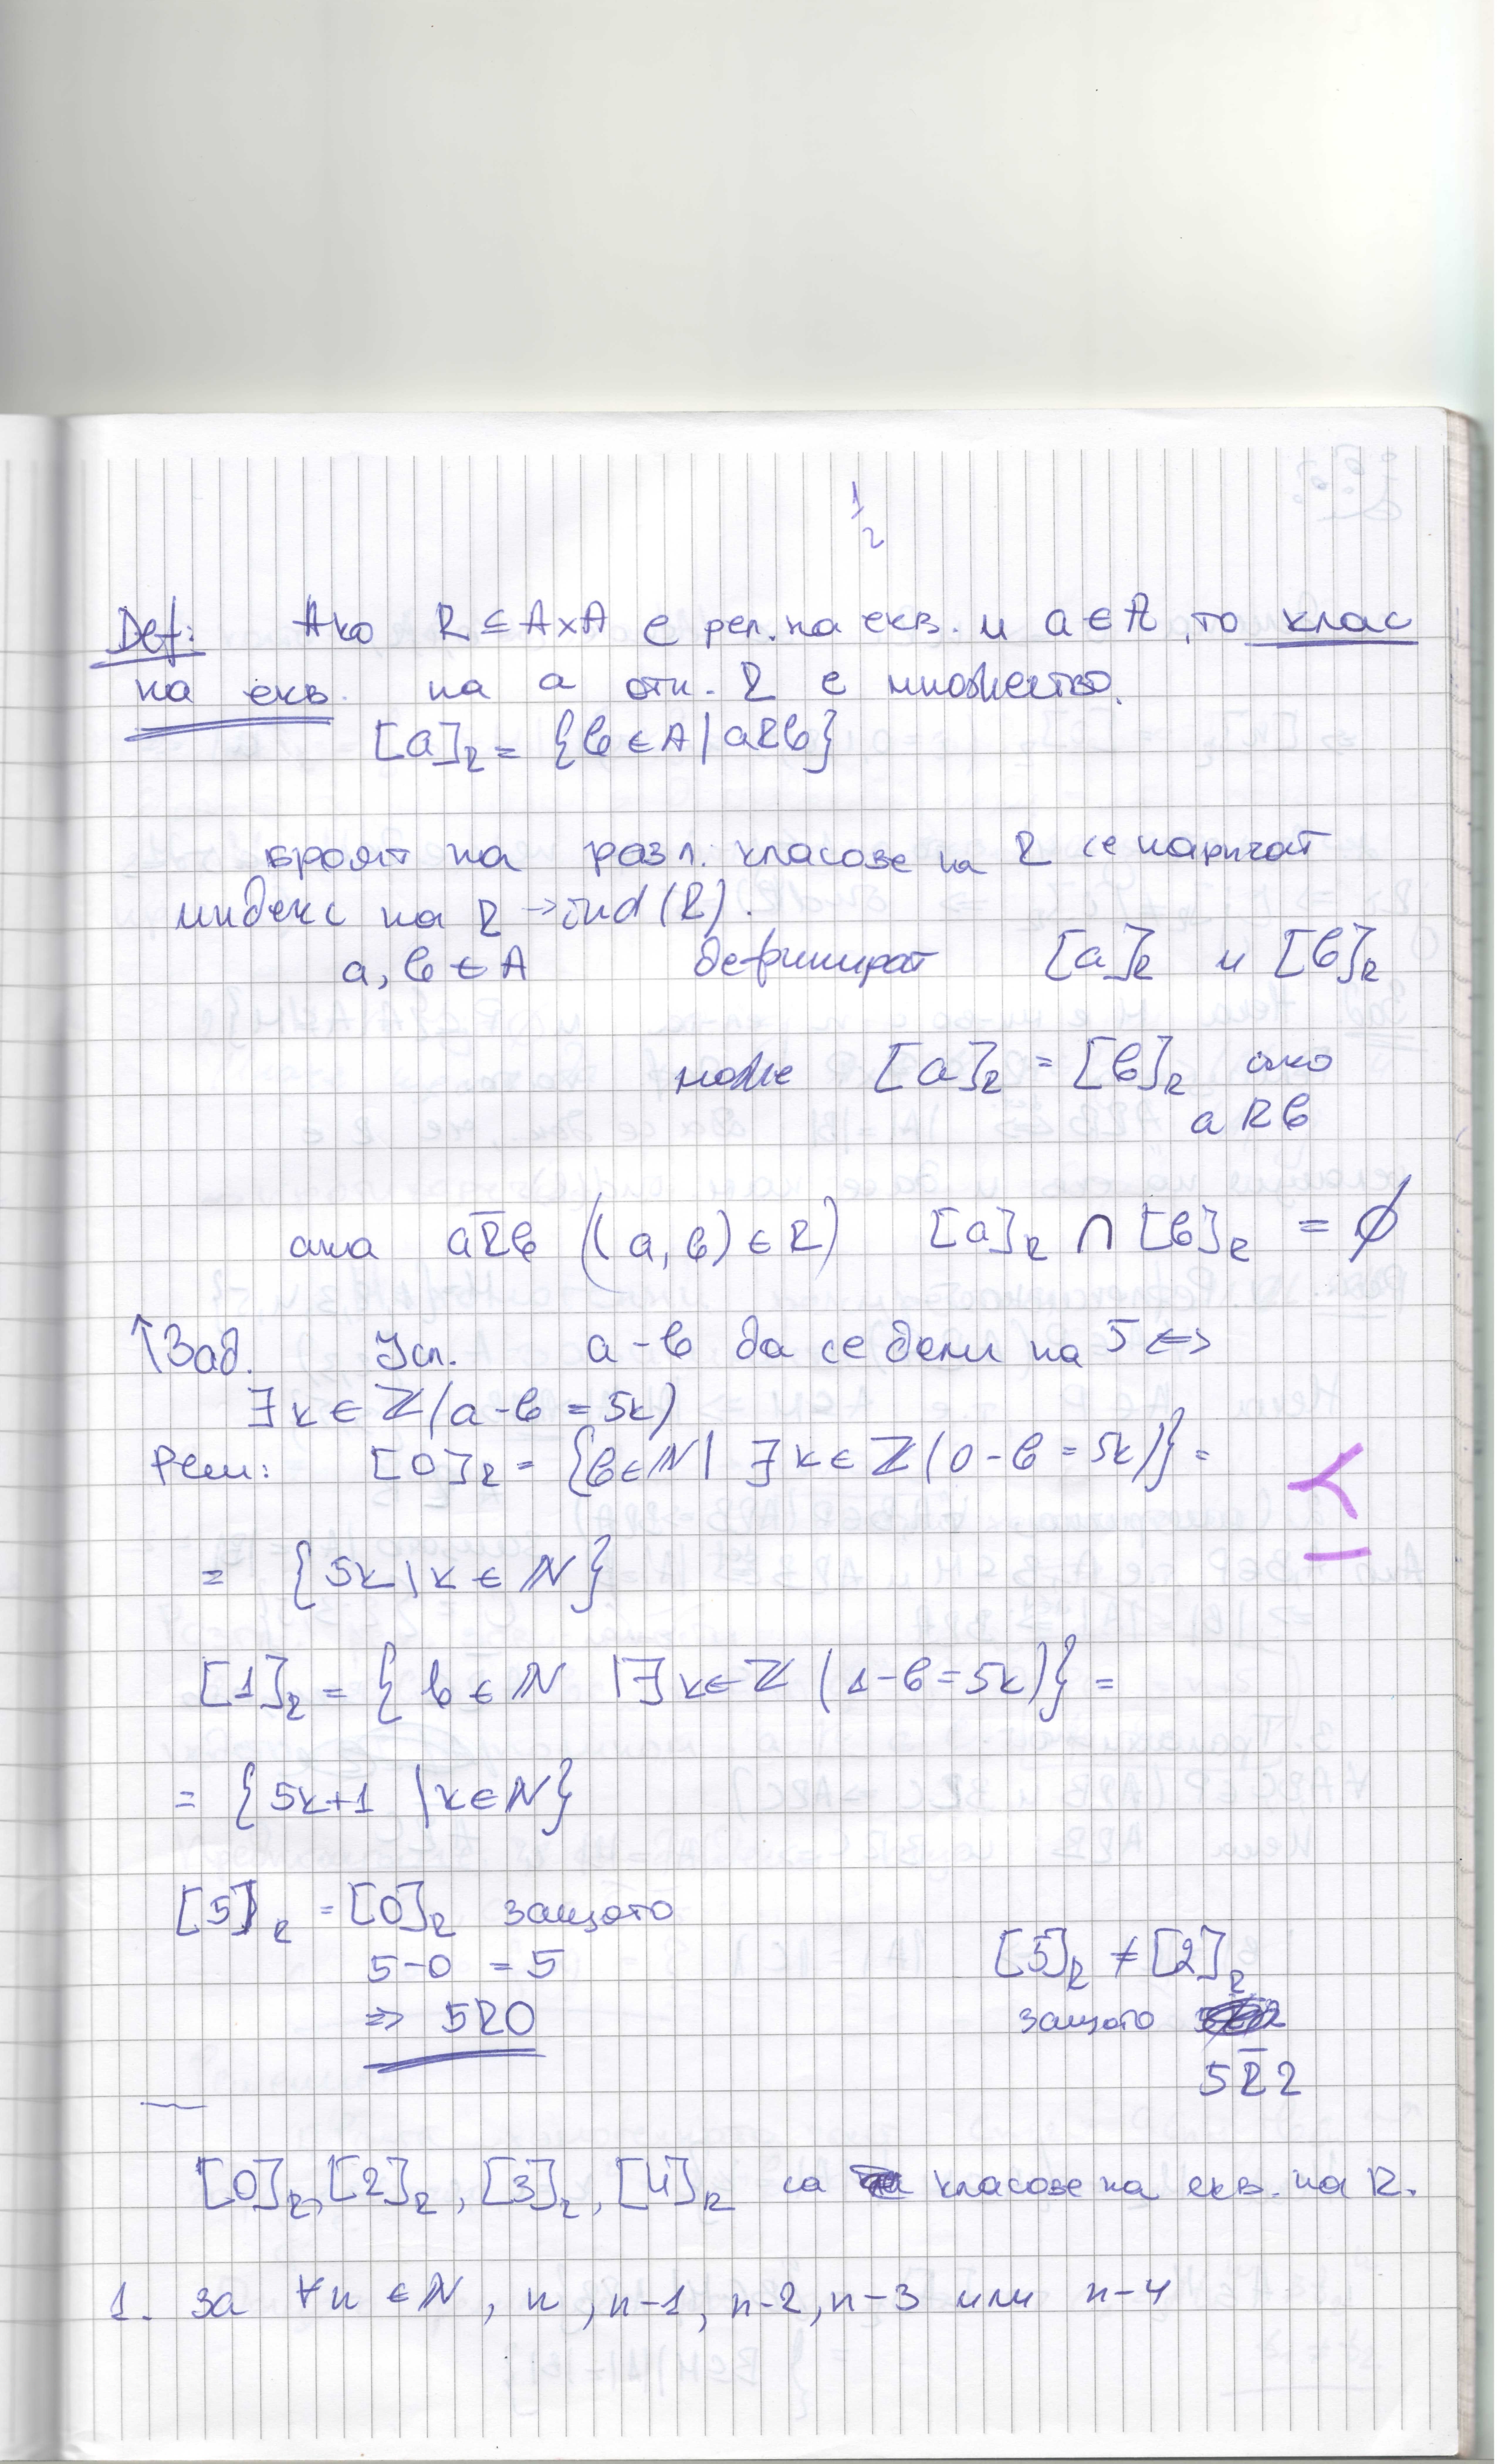 1/2
Def: Ако R ⊆ A×A е рел. на екв. и a ∈ A, то клас
на екв. на a отн. R е множество.
[a]_R = {b ∈ A | aRb}
броят на разл. класове на R се наричат
индекс на R → ind(R).
a, b ∈ A дефинират [a]_R и [b]_R
може [a]_R = [b]_R ако
aRb
ака aR̅b ((a, b) ∈ R) [a]_R ∩ [b]_R = ∅
↑Зад. Усл. a-b да се дели на 5 <=>
∃k ∈ ℤ(a-b = 5k)
Реш: [0]_R = {b ∈ ℕ | ∃k ∈ ℤ(0-b = 5k)} =
= {5k | k ∈ ℕ}
[1]_R = {b ∈ ℕ | ∃k ∈ ℤ (1-b = 5k)} =
= {5k+1 | k ∈ ℕ}
[5]_R = [0]_R защото
5-0 = 5
=> 5R0
[5]_R ≠ [2]_R
защото
5R̅2
[0]_R, [2]_R, [3]_R, [4]_R са класове на екв. на R.
1. за ∀n ∈ ℕ, n, n-1, n-2, n-3 или n-4